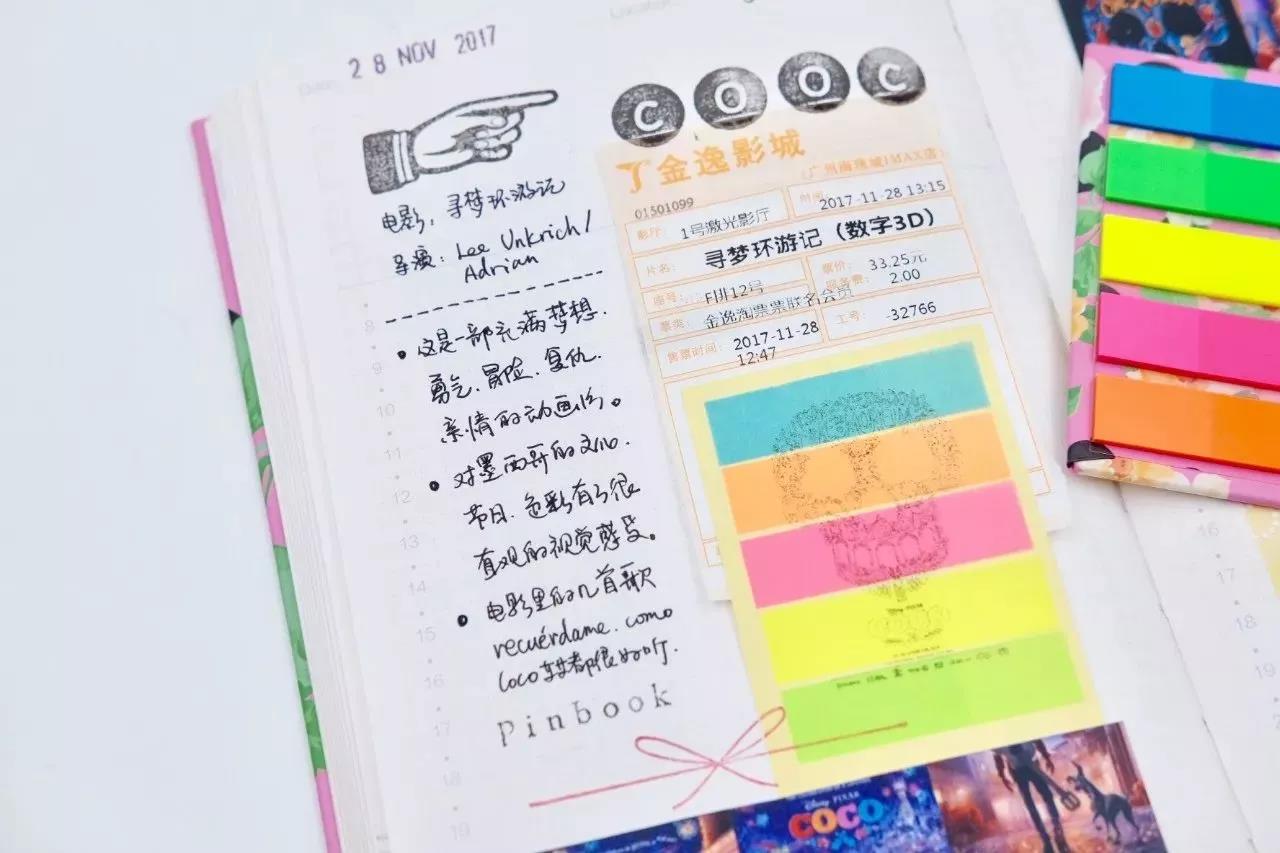 28 NOV 2017
COOC
电影：寻梦环游记
导演：Lee Unkrich /
Adrian
这是一部充满梦想.
勇气.冒险.复仇.
亲情的动画片。
对墨西哥的文化.
节日.色彩有了很
直观的视觉感受。
电影里的几首歌
recuérdame. como
Coco等都很好听.
Pinbook
金逸影城
(广州南珠城IMAX店)
01501099
影厅： 1号激光影厅
时间： 2017-11-28 13:15
片名： 寻梦环游记（数字3D）
座号： F排12号
票价： 33.25元
服务费： 2.00
票类： 金逸淘票票联名会员
售票时间： 2017-11-28
12:47
工号： -32766
Disney PIXAR
COCO
8
9
10
11
12
13
14
15
16
17
18
19
16
17
18
19